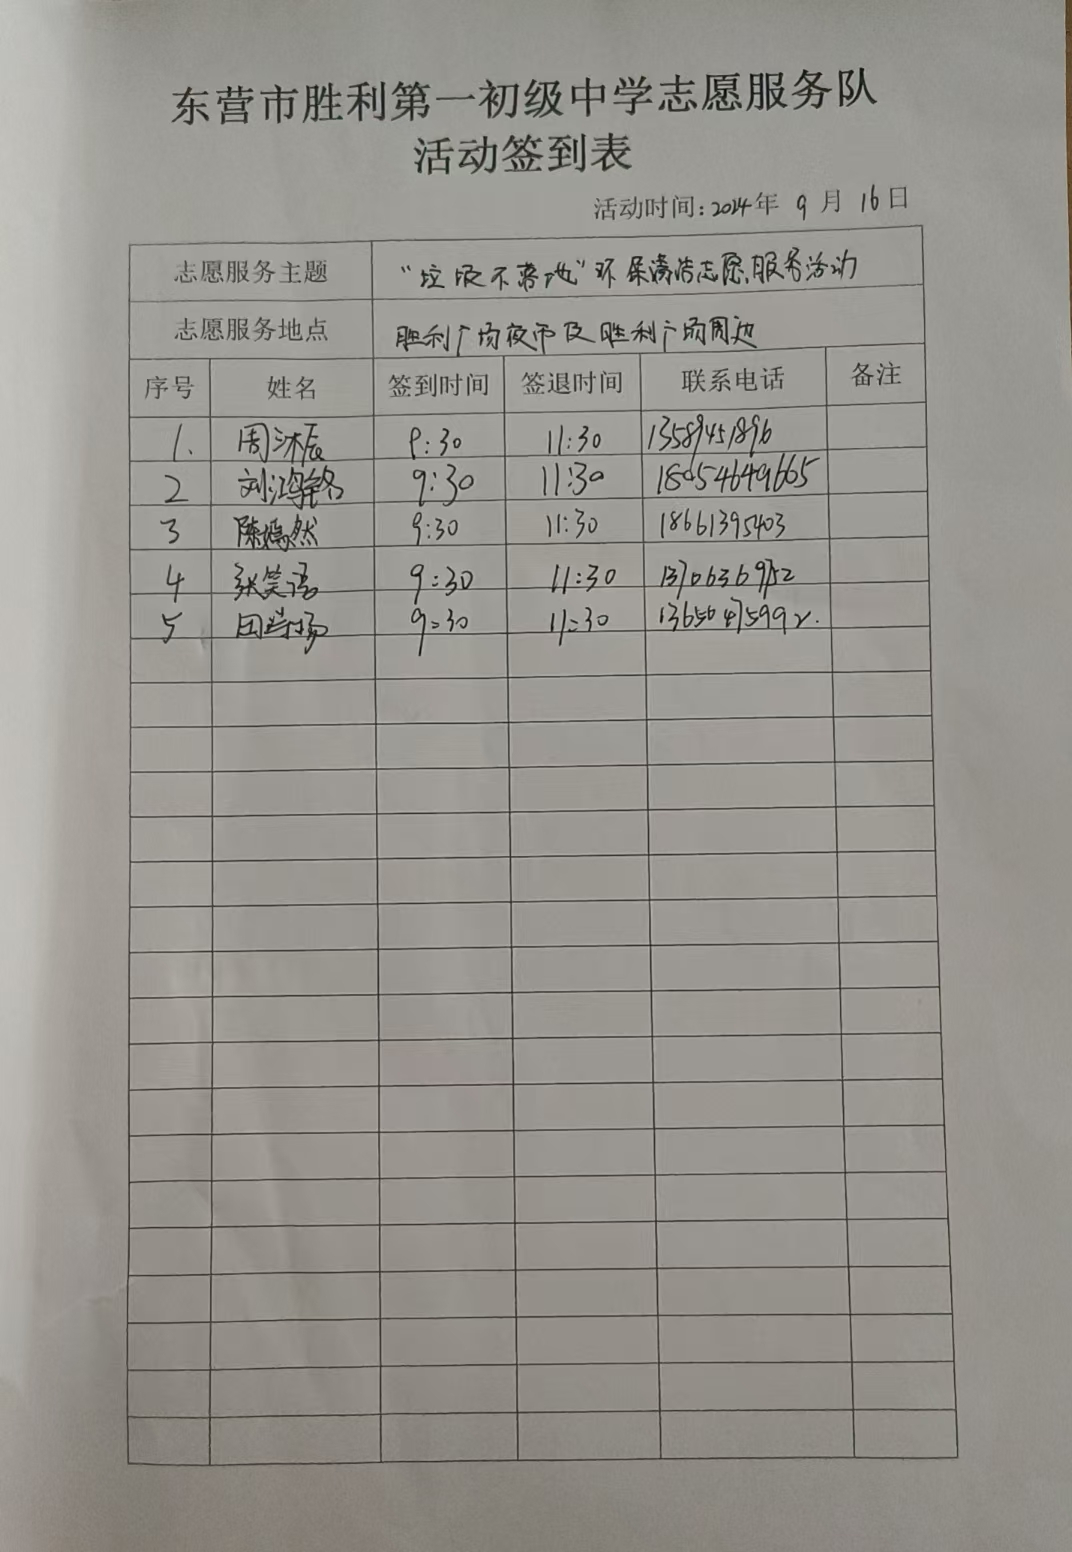 东营市胜利第一初级中学志愿服务队
活动签到表
活动时间:2024年 9 月 16日
志愿服务主题 "垃圾不落地"环保清洁志愿服务活动
志愿服务地点 胜利广场夜市及胜利广场周边
序号 姓名 签到时间 签退时间 联系电话 备注
1. 周沐辰 9:30 11:30 13589451896
2 刘鸿铭 9:30 11:30 18954649665
3 陈嫣然 9:30 11:30 18661395403
4 张笑语 9:30 11:30
5 9:30 11:30